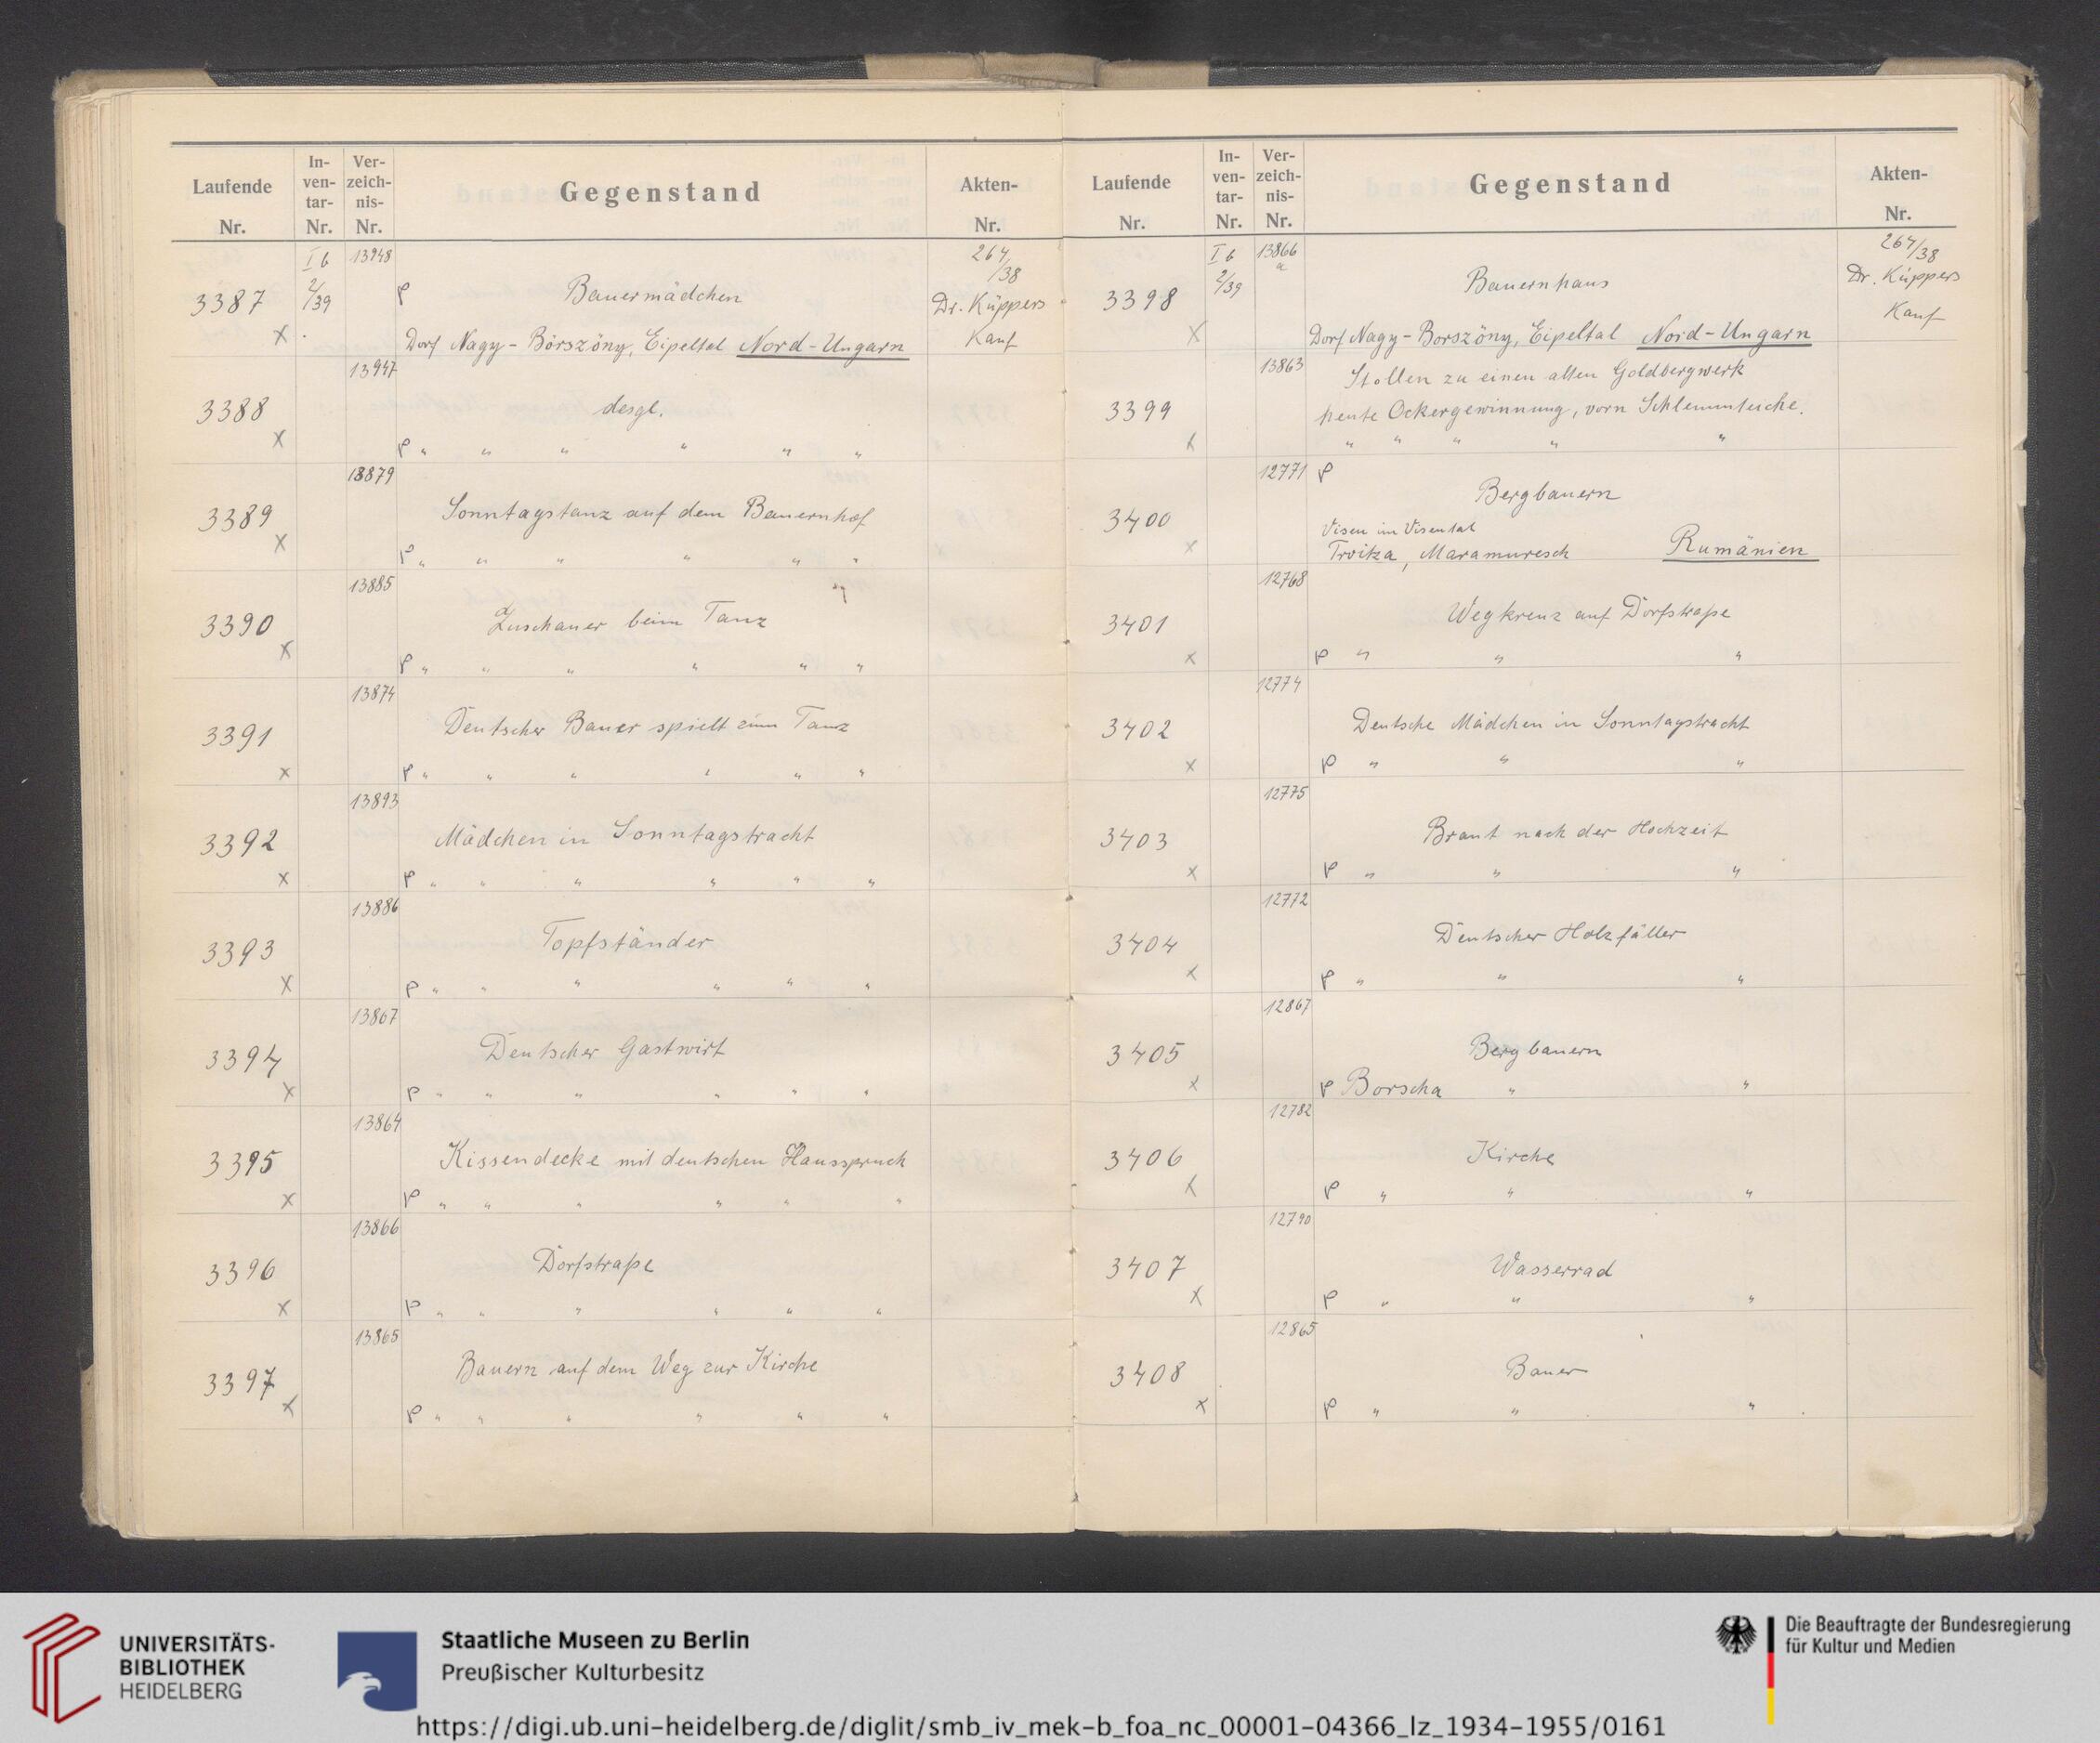 Laufende Nr.
In-ven-tar-Nr.
Ver-zeich-nis-Nr.
Gegenstand
Akten-Nr.
I b 13948 264/38
3387 2/39 P Bauermädchen Dr. Küppers
X Dorf Nagy-Börszöny, Eipeltal Nord-Ungarn Kauf
13947
3388 desgl.
X P " " " " " "
13879
3389 Sonntagstanz auf dem Bauernhof
X P " " " " " "
13885
3390 Zuschauer beim Tanz
X P " " " " " "
13874
3391 Deutscher Bauer spielt zum Tanz
X P " " " " " "
13893
3392 Mädchen in Sonntagstracht
X P " " " " " "
13886
3393 Topfständer
X P " " " " " "
13867
3394 Deutscher Gastwirt
X P " " " " " "
13864
3395 Kissendecke mit deutschen Hausspruch
X P " " " " " "
13866
3396 Dorfstraße
X P " " " " " "
13865
3397 Bauern auf dem Weg zur Kirche
X P " " " " " "
Laufende Nr.
In-ven-tar-Nr.
Ver-zeich-nis-Nr.
Gegenstand
Akten-Nr.
I b 13866 a 264/38
3398 2/39 Bauernhaus Dr. Küppers
X Dorf Nagy-Borszöny, Eipeltal Nord-Ungarn Kauf
13863 Stollen zu einen alten Goldbergwerk
3399 heute Ockergewinnung, vorn Schlemmteiche.
X " " " " "
12771 P
3400 Bergbauern
Visen im Visental
X Troitza, Maramuresch Rumänien
12768
3401 Wegkreuz auf Dorfstraße
X P " " "
12774
3402 Deutsche Mädchen in Sonntagstracht
X P " " "
12775
3403 Braut nach der Hochzeit
X P " " "
12772
3404 Deutscher Holzfäller
X P " " "
12867
3405 Bergbauern
X P Borscha " "
12782
3406 Kirche
X P " " "
12790
3407 Wasserrad
X P " " "
12865
3408 Bauer
X P " " "
UNIVERSITÄTS-
BIBLIOTHEK
HEIDELBERG
Staatliche Museen zu Berlin
Preußischer Kulturbesitz
Die Beauftragte der Bundesregierung
für Kultur und Medien
https://digi.ub.uni-heidelberg.de/diglit/smb_iv_mek-b_foa_nc_00001-04366_lz_1934-1955/0161